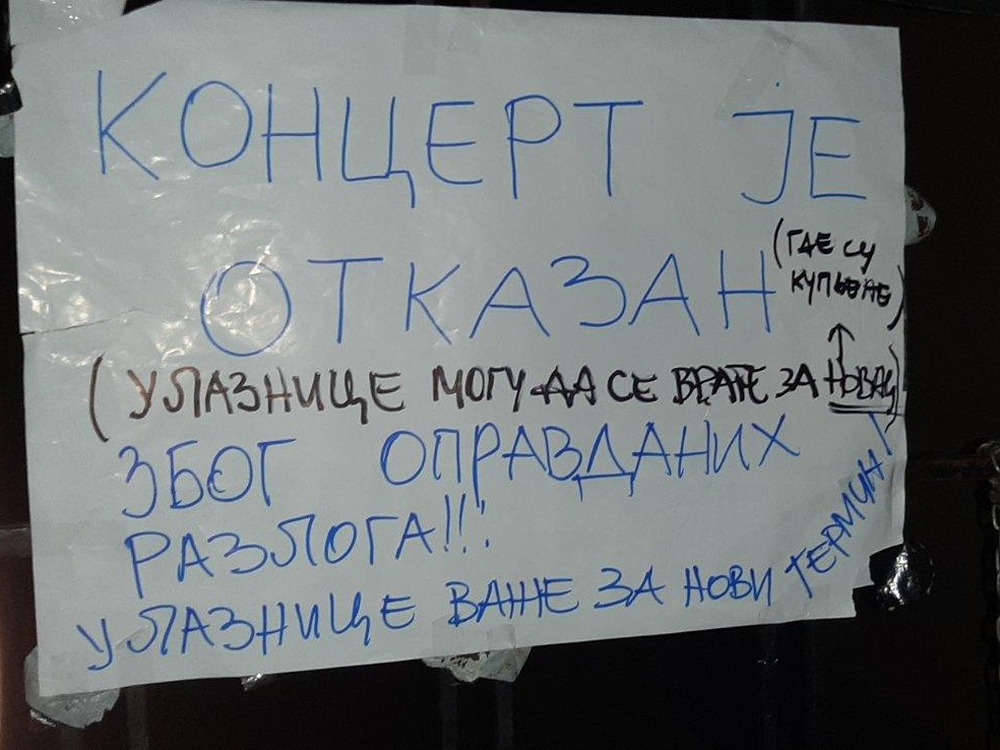 КОНЦЕРТ ЈЕ
ОТКАЗАН
(ГДЕ СУ
КУПЉЕНЕ)
(УЛАЗНИЦЕ МОГУ ДА СЕ ВРАТЕ ЗА НОВАЦ)
ЗБОГ ОПРАВДАНИХ
РАЗЛОГА!!!
УЛАЗНИЦЕ ВАЖЕ ЗА НОВИ ТЕРМИН!